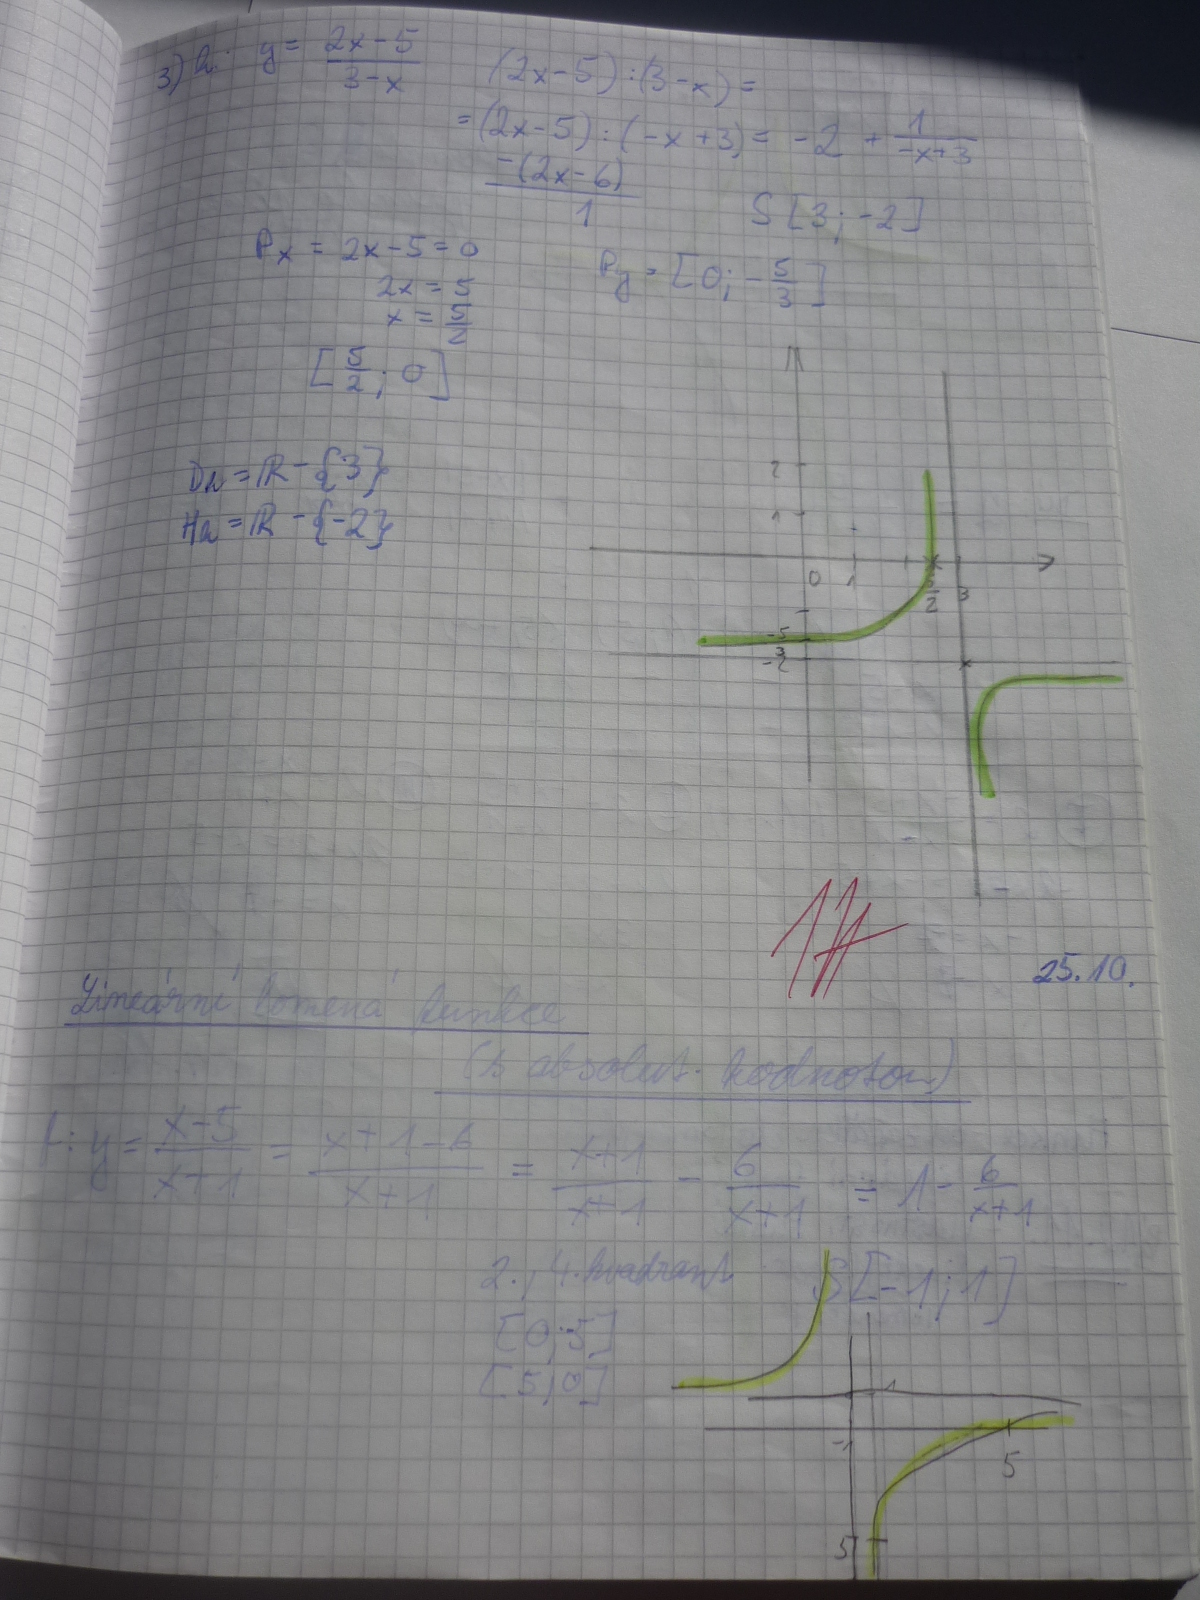 3) h: y = (2x-5)/(3-x) (2x-5):(3-x)=
=(2x-5):(-x+3)= -2 + 1/(-x+3)
-(2x-6)
1
S[3; -2]
Px = 2x-5=0
2x = 5
x = 5/2
[5/2; 0]
Py = [0; -5/3]
Dh = R - {3}
Hh = R - {-2}
2
1
0 1 5/2 3
-5/3
-2
25.10.
Lineární lomená funkce
(s absolut. hodnotou)
f: y = (x-5)/(x+1) = (x+1-6)/(x+1) = (x+1)/(x+1) - 6/(x+1) = 1 - 6/(x+1)
2., 4. kvadrant S[-1; 1]
[0; 5]
[5; 0]
1
-1
5
5